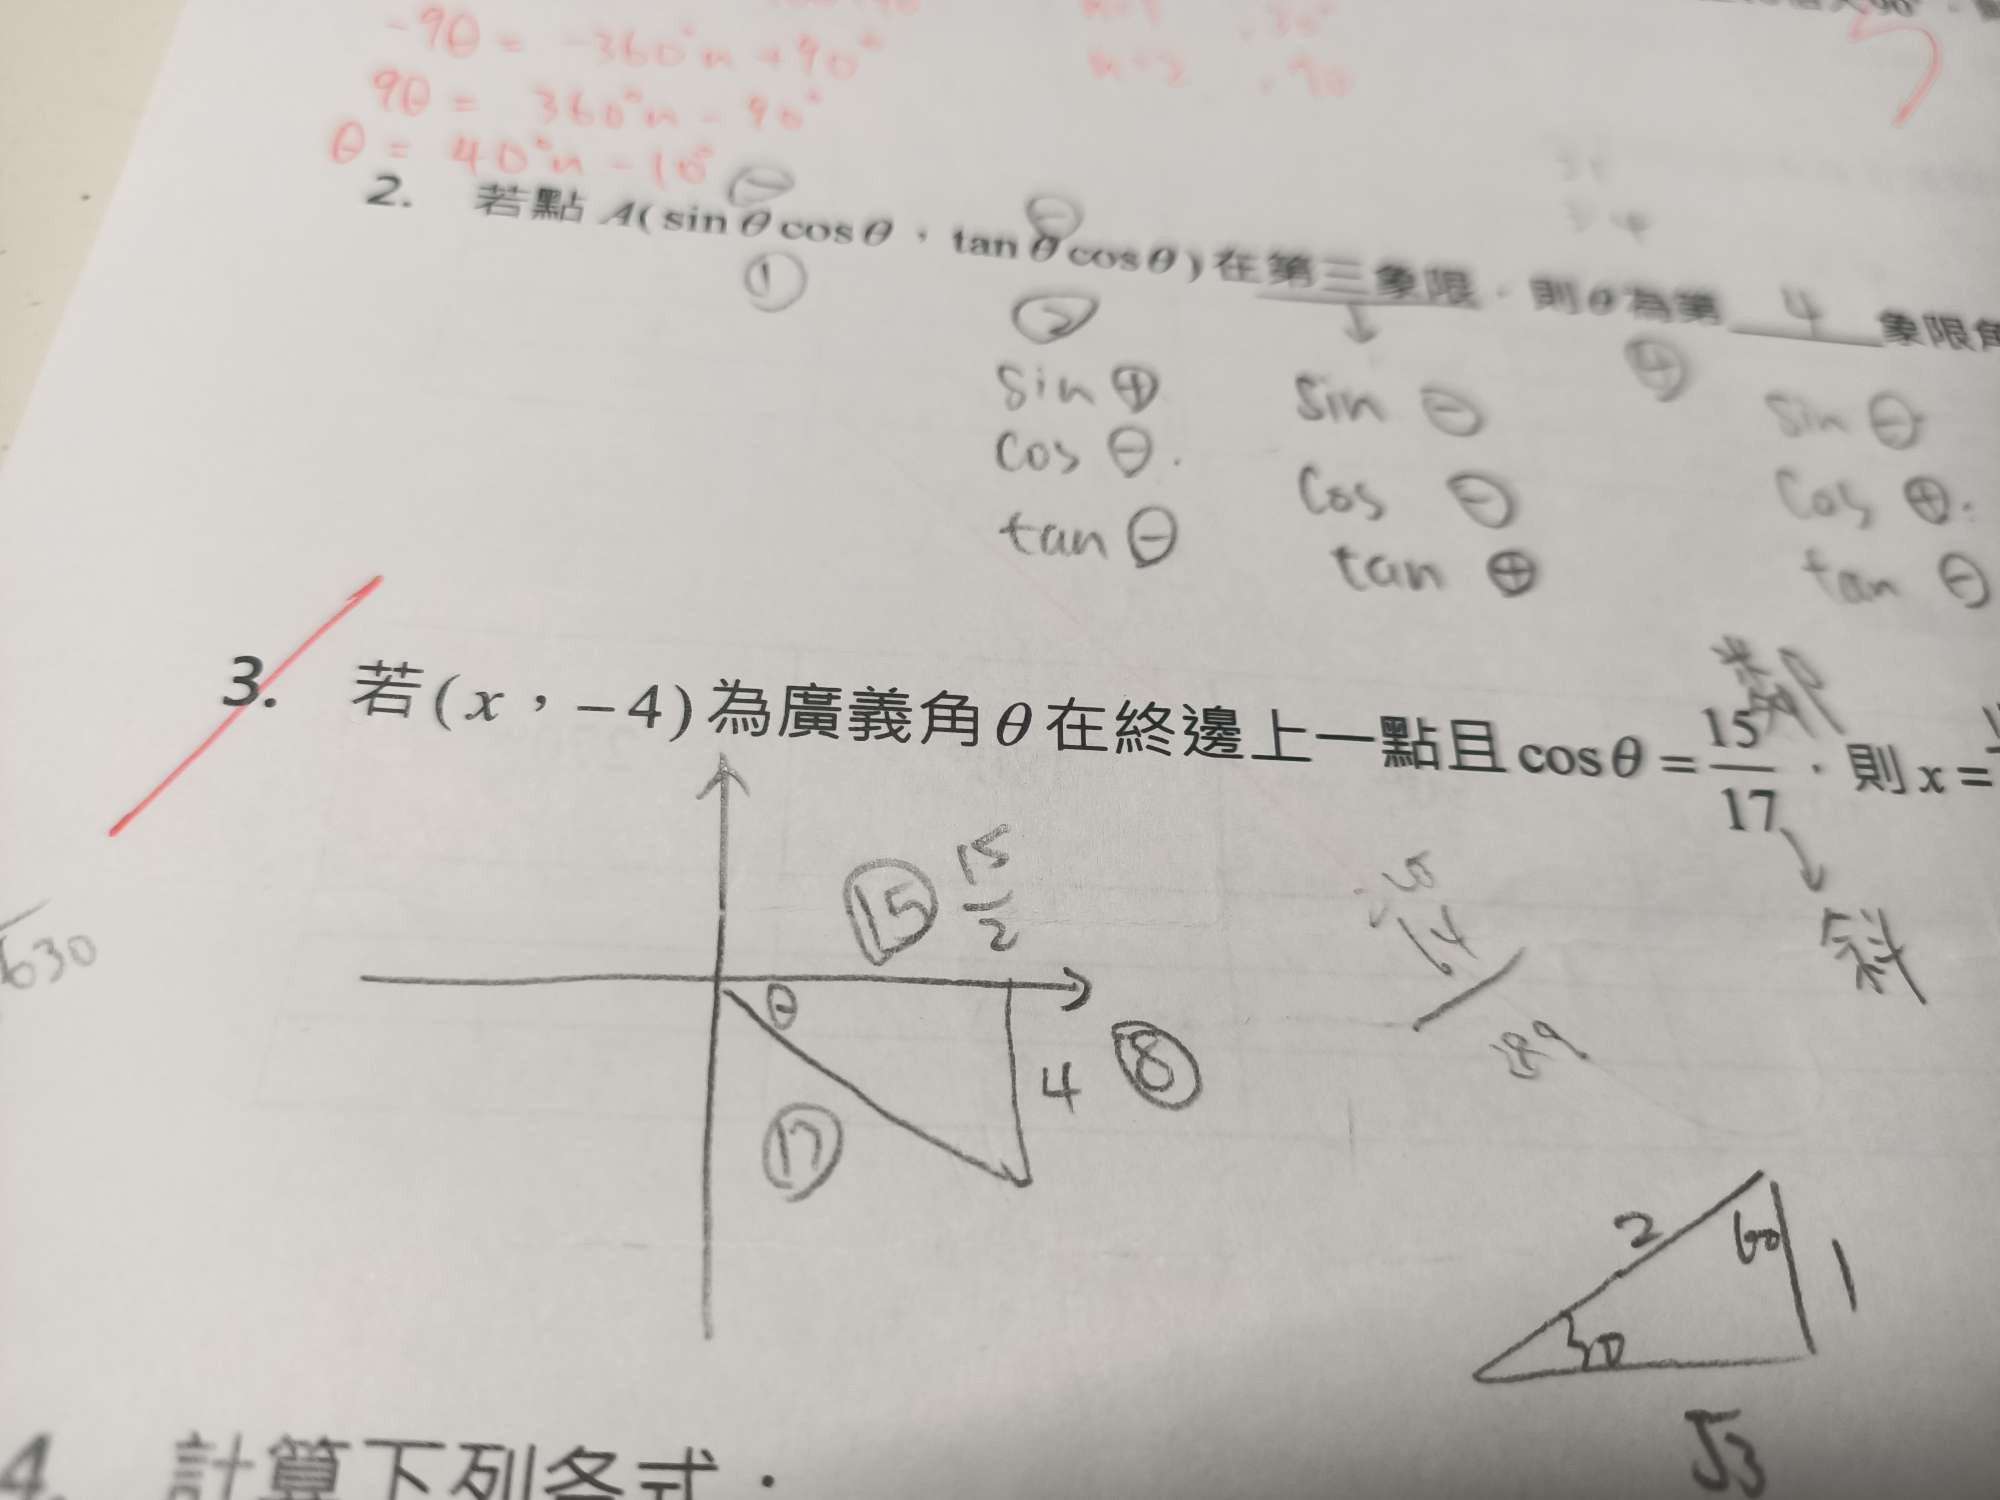 -9θ = -360°n + 90°
9θ = 360°n - 90°
θ = 40°n - 10°
2. 若點 A(sinθcosθ，tanθcosθ)在第三象限，則θ為第 4 象限角
⊖ ⊖
① ② ④
sin ⊕ sin ⊖ sin ⊖
cos ⊖ cos ⊖ cos ⊕
tan ⊖ tan ⊕ tan ⊖
3. 若(x，-4)為廣義角θ在終邊上一點且cosθ=15/17，則x=
斜
⑮ 15/2
630
θ
4 ⑧
⑰
64
289
2 60 1
30
√3
4. 計算下列各式：